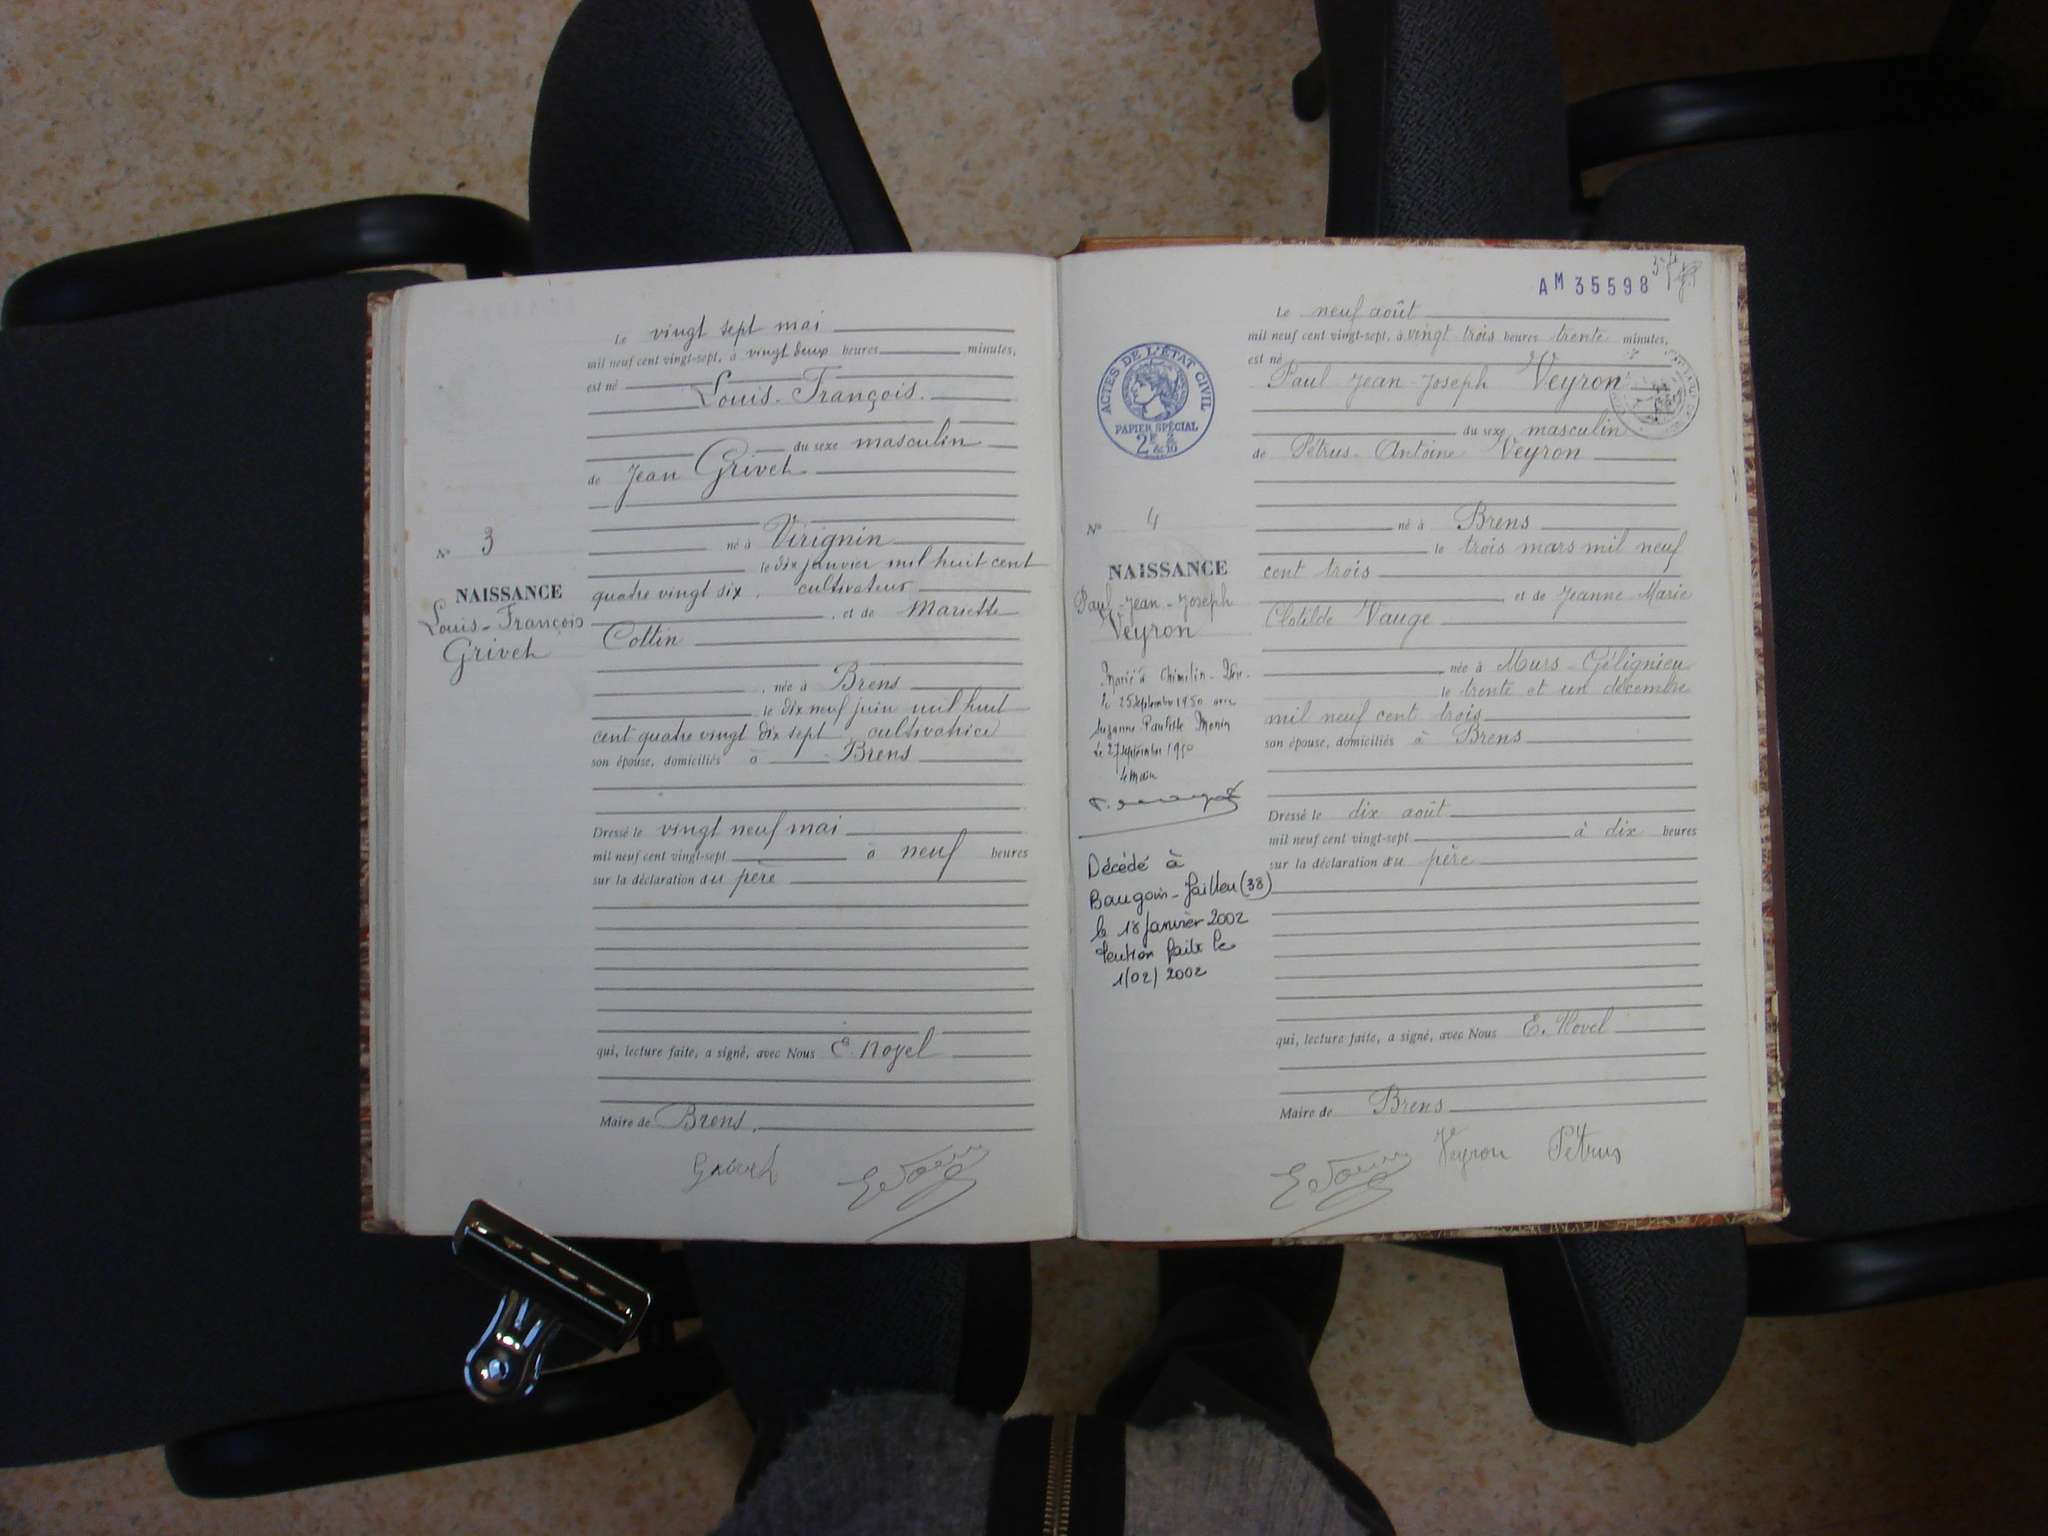 Le vingt sept mai
mil neuf cent vingt-sept, à vingt deux heures minutes,
est né
Louis-François.
du sexe masculin
de Jean Grivet
N° 3
né à Virignin
le dix janvier mil huit cent
quatre vingt six, cultivateur
NAISSANCE
Louis-François
Grivet
, et de Mariette
Collin
, née à Brens
le dix neuf juin mil huit
cent quatre vingt dix sept cultivatrice
son épouse, domiciliés à Brens
Dressé le vingt neuf mai
mil neuf cent vingt-sept à neuf heures
sur la déclaration du père
qui, lecture faite, a signé, avec Nous E. Noyel
Maire de Brens.
Grivet
AM 35598
Le neuf août
mil neuf cent vingt-sept, à vingt trois heures trente minutes,
est né
Paul-Jean-Joseph Veyron
ACTES DE L'ÉTAT CIVIL
PAPIER SPÉCIAL
du sexe masculin
de Pétrus-Antoine Veyron
N° 4
né à Brens
le trois mars mil neuf
cent trois
NAISSANCE
Paul-Jean-Joseph
Veyron
et de Jeanne Marie
Clotilde Vauge
, née à Murs-Gélignieu
le trente et un décembre
mil neuf cent trois
son épouse, domiciliés à Brens
Marié à Chimilin
le 25 septembre 1950 avec
Suzanne Paulette Monin
Le 27 septembre 1950
Le Maire
Dressé le dix août
mil neuf cent vingt-sept à dix heures
sur la déclaration du père
Décédé à
Bourgoin-Jallieu (38)
le 18 janvier 2002
faite le
1/02/2002
qui, lecture faite, a signé, avec Nous E. Novel
Maire de Brens
Veyron Pétrus